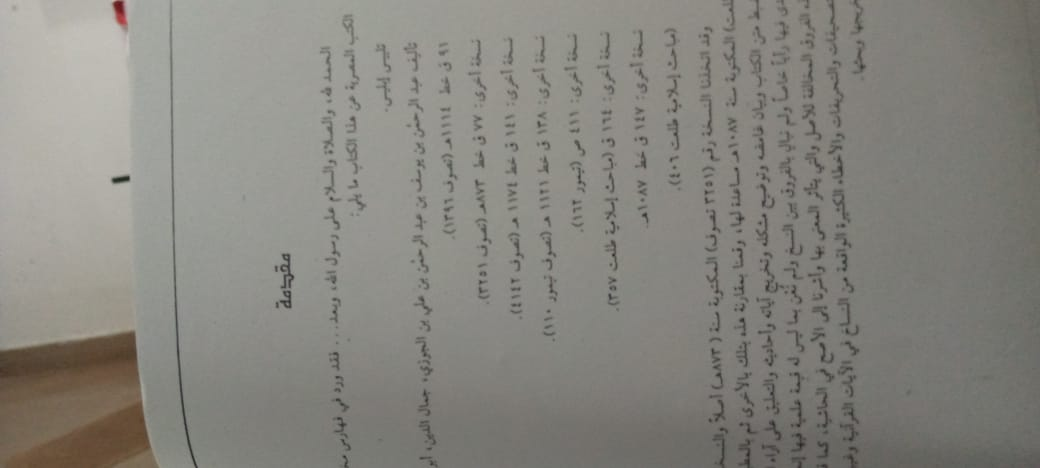 مقدمة
الحمد لله، والصلاة والسلام على رسول الله، وبعد... فقد ورد في فهارس
الكتب المصرية عن هذا الكتاب ما يلي:
تلبيس إبليس.
تأليف عبد الرحمن بن يوسف بن عبد الرحمن بن علي بن الجوزي، جمال الدين،
٩١ ق خط ١١١٤ هـ (تصوف ١٣٩٦).
نسخة أخرى: ٧٧ ق خط ٨٧٣هـ (تصوف ٣٢٥١).
نسخة أخرى: ١٤١ ق خط ١١٧٤ هـ (تصوف ٤١٤٢).
نسخة أخرى: ١٣٨ ق خط ١١٢١ هـ (تصوف تيمور ١١٠).
نسخة أخرى: ٤١١ ص (تيمور ١٦٢).
نسخة أخرى: ١٦٤ ق (مباحث إسلامية طلعت ٣٥٧).
نسخة أخرى: ١٤٧ ق خط ١٠٨٧هـ.
(مباحث إسلامية طلعت ٤٠٦).
وقد اتخذنا النسخة رقم (٣٢٥١ تصوف) المكتوبة سنة (٨٧٣هـ) أصلاً
المكتوبة سنة ١٠٨٧هـ مساعدة لها، وقمنا بمقارنة هذه بتلك بالأخرى ثم
متن الكتاب وبيان غامضه وتوضيح مشكله وتخريج آياته وأحاديثه والتعليق على
فيها رأياً خاصاً ولم نبالي بالفروق بين النسخ ولم نُعن بما ليس له قيمة علمية فيها
الفروق المخالفة للأصل والتي يتأثر المعنى بها وأشرنا إلى الأصح في الحاشية، كما
والتحريفات والأخطاء الكثيرة الواقعة من النساخ في الآيات القرآنية